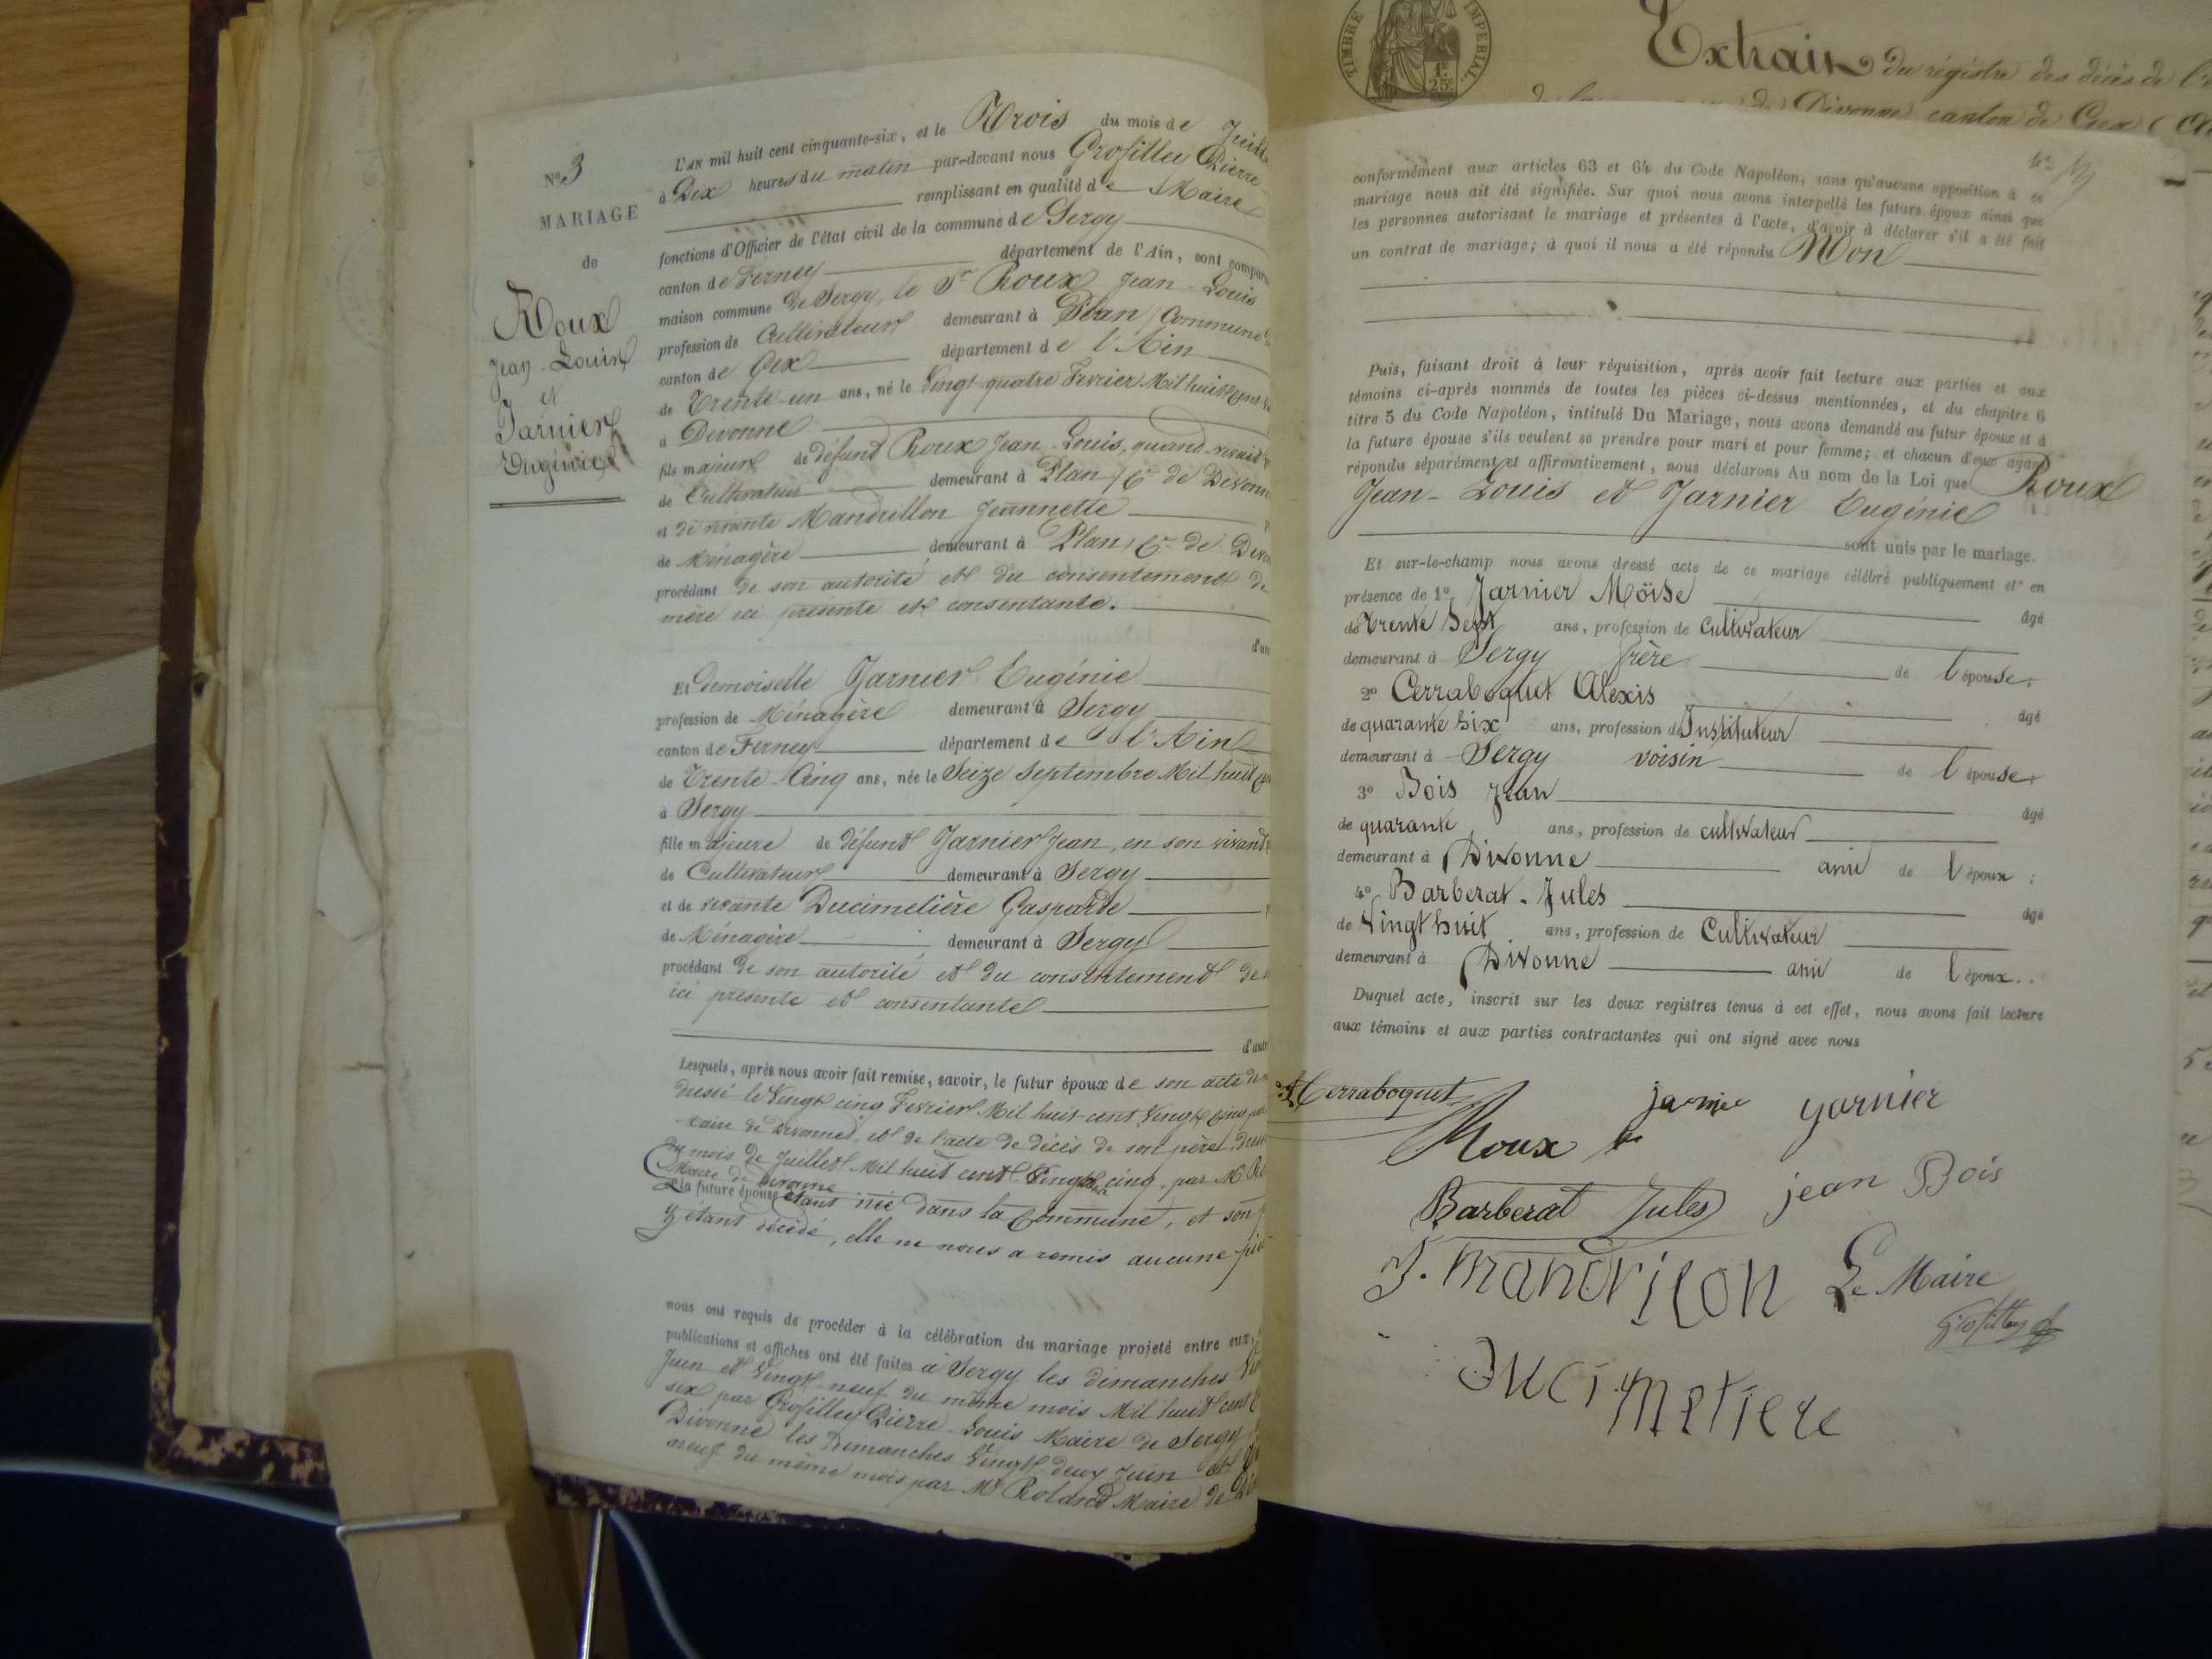 N° 3
MARIAGE
de
Roux
Jean-Louis
et
Jarnier
Eugénie
L'AN mil huit cent cinquante-six, et le Trois du mois de Juill
à Dix heures du matin par-devant nous Grosfilley Pierre-
remplissant en qualité de Maire
fonctions d'Officier de l'état civil de la commune de Sergy
canton de Ferney département de l'Ain, sont compar
maison commune de Sergy, le Sr Roux Jean-Louis
profession de Cultivateur demeurant à Plan (Commune
canton de Gex département de l'Ain
de Trente-un ans, né le Vingt quatre Fevrier Mil huit Cent
à Divonne
fils majeur de défunt Roux Jean-Louis, quand-vivait
de Cultivateur demeurant à Plan, Cne de Divonne
et de vivante Mandrillon Jeannette
de Ménagère demeurant à Plan, Cne de Divon
procédant de son autorité et du consentement de
mère ici présente et consentante.
d'une
Et demoiselle Jarnier Eugénie
profession de Ménagère demeurant à Sergy
canton de Ferney département de l'Ain
de Trente-Cinq ans, née le Seize Septembre Mil huit
à Sergy
fille majeure de défunt Jarnier Jean, en son vivant
de Cultivateur demeurant à Sergy
et de vivante Ducimetière Gasparde
de Ménagère demeurant à Sergy
procédant de son autorité et du consentement de
ici présente et consentante
d'autre
Lesquels, après nous avoir fait remise, savoir, le futur époux de son acte de
dressé le Vingt cinq Fevrier Mil huit cent Vingt Cinq par
Maire de Divonne, et de l'acte de décès de son père, dres
du mois de Juillet Mil huit cent Vingt cinq, par Mr
Maire de Divonne
et la future épouse étant née dans la Commune, et son
y étant décédé, elle ne nous a remis aucune piè
nous ont requis de procéder à la célébration du mariage projeté entre eux,
publications et affiches ont été faites à Sergy les dimanches
Juin et Vingt-neuf du même mois Mil huit cent
six par Grosfilley Pierre-Louis Maire de Sergy
Divonne les Dimanches Vingt-deux Juin et
neuf du même mois par Mr Roland Maire de
TIMBRE IMPERIAL
1F
25c
Extrait du régistre des décès de l'
Divonne canton de Gex
conformément aux articles 63 et 64 du Code Napoléon, sans qu'aucune opposition à ce
mariage nous ait été signifiée. Sur quoi nous avons interpellé les futurs époux ainsi que
les personnes autorisant le mariage et présentes à l'acte, d'avoir à déclarer s'il a été fait
un contrat de mariage; à quoi il nous a été répondu Non
Puis, faisant droit à leur réquisition, après avoir fait lecture aux parties et aux
témoins ci-après nommés de toutes les pièces ci-dessus mentionnées, et du chapitre 6
titre 5 du Code Napoléon, intitulé Du Mariage, nous avons demandé au futur époux et à
la future épouse s'ils veulent se prendre pour mari et pour femme; et chacun d'eux ayant
répondu séparément et affirmativement, nous déclarons Au nom de la Loi que Roux
Jean-Louis et Jarnier Eugénie
sont unis par le mariage.
Et sur-le-champ nous avons dressé acte de ce mariage célébré publiquement et en
présence de 1° Jarnier Moïse âgé
de Trente Sept ans, profession de cultivateur
demeurant à Sergy frère de l'épouse;
2° Cerraboquet Alexis âgé
de quarante six ans, profession d'Instituteur
demeurant à Sergy voisin de l'épouse;
3° Bois Jean âgé
de quarante ans, profession de cultivateur
demeurant à Divonne ami de l'époux;
4° Barberat. Jules âgé
de Vingt huit ans, profession de Cultivateur
demeurant à Divonne ami de l'époux..
Duquel acte, inscrit sur les deux registres tenus à cet effet, nous avons fait lecture
aux témoins et aux parties contractantes qui ont signé avec nous
A Cerraboquet
Roux
garnier
Barberat Jules jean Bois
J. mandrilon Le Maire
Grosfilley
Ducimetiere